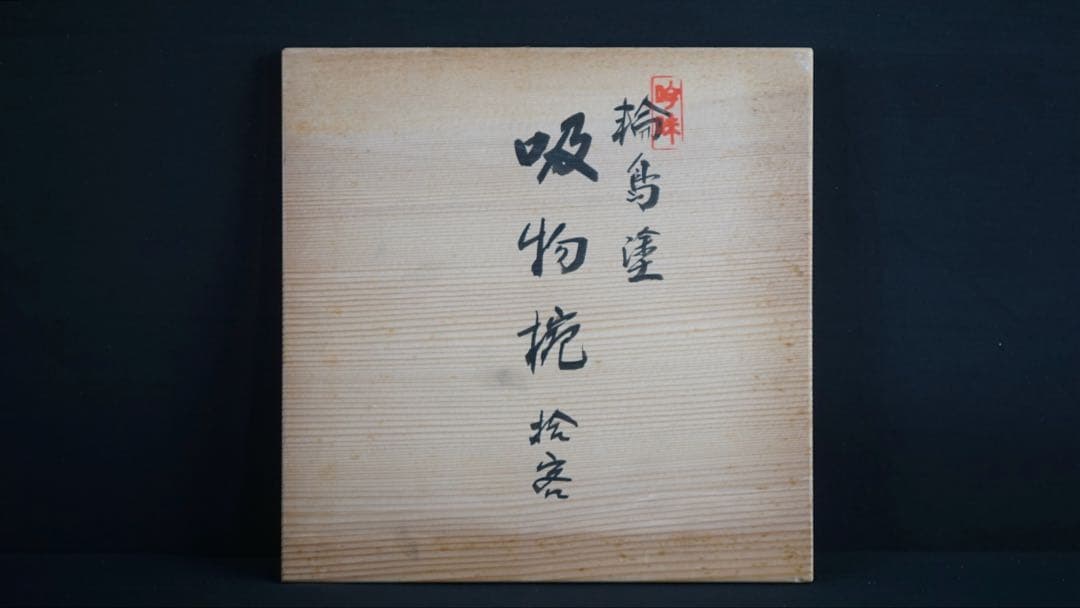 吟味
輪島塗
吸物椀 拾客